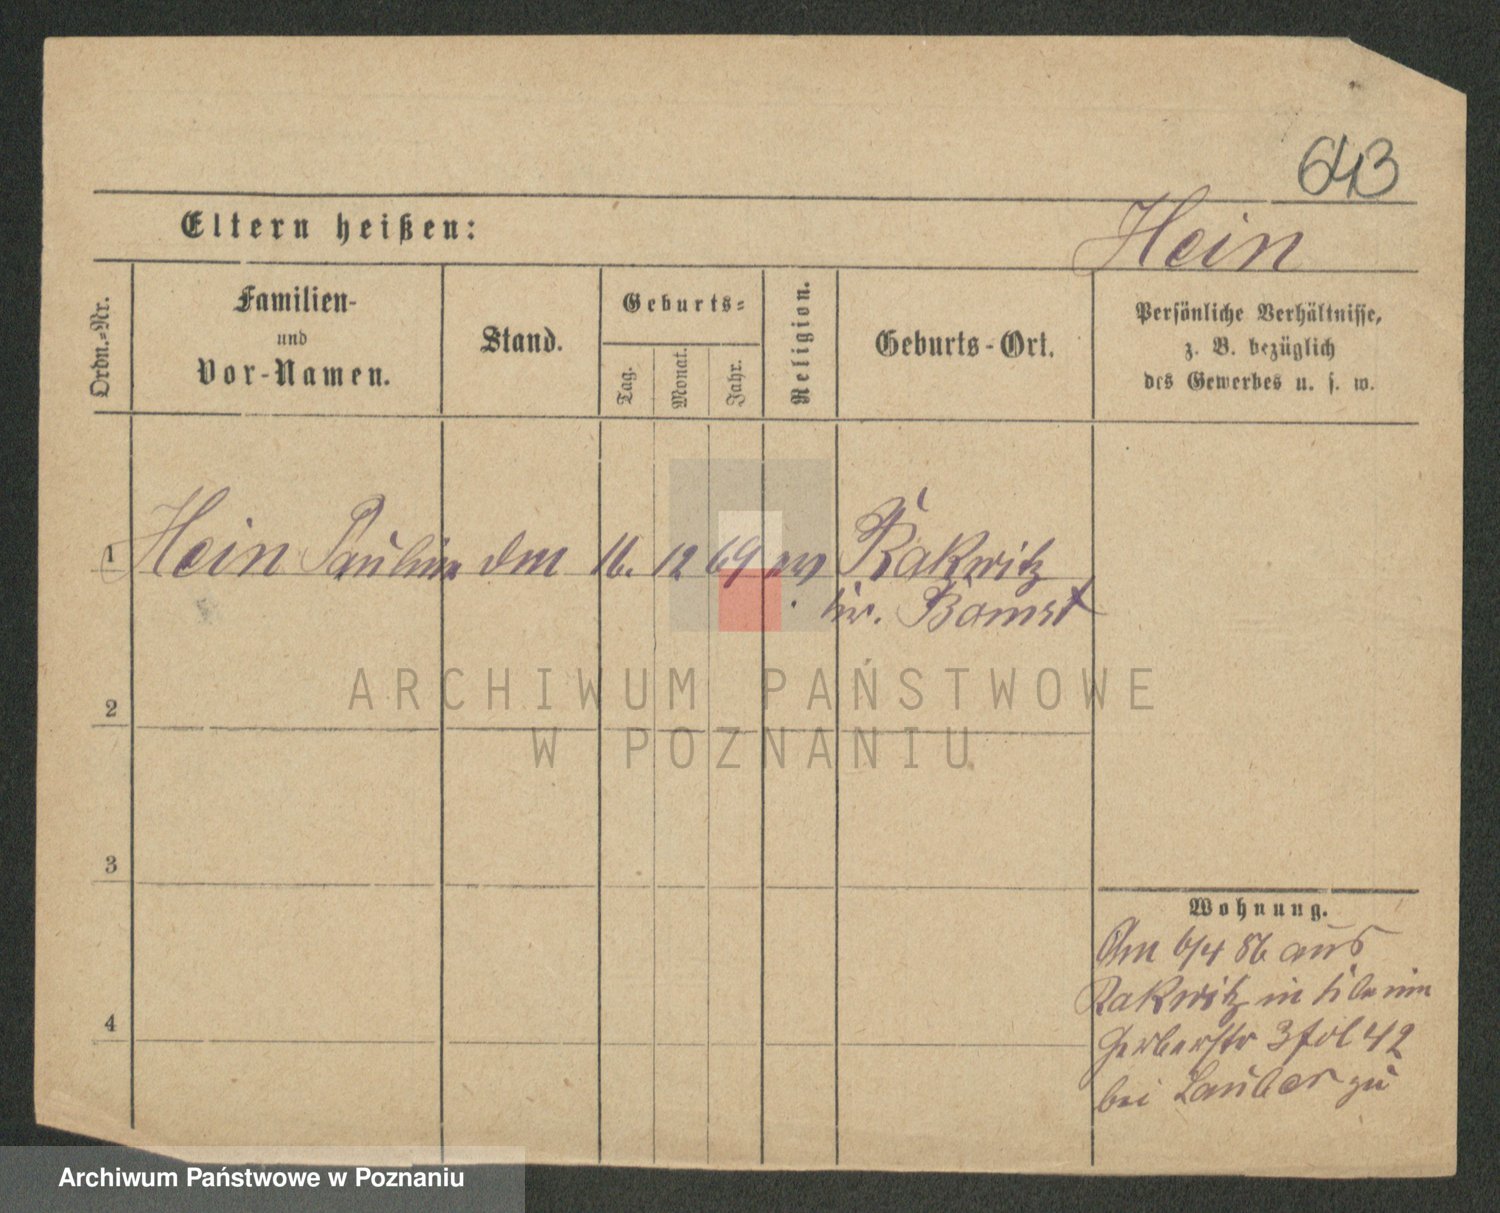 643
Eltern heißen:
Hein
Ordn.=Nr.
Familien-
und
Vor-Namen.
Stand.
Geburts=
Tag.
Monat.
Jahr.
Religion.
Geburts-Ort.
Persönliche Verhältnisse,
z. B. bezüglich
des Gewerbes u. s. w.
1 Hein Pauline 16. 12 69 ev Rakwitz
Kr. Bomst
2
3
4
Wohnung.
Am 6/4 86 aus
Rakwitz in
Gerberstr 3 fol 42
bei Lauber zu
ARCHIWUM PAŃSTWOWE
W POZNANIU
Archiwum Państwowe w Poznaniu